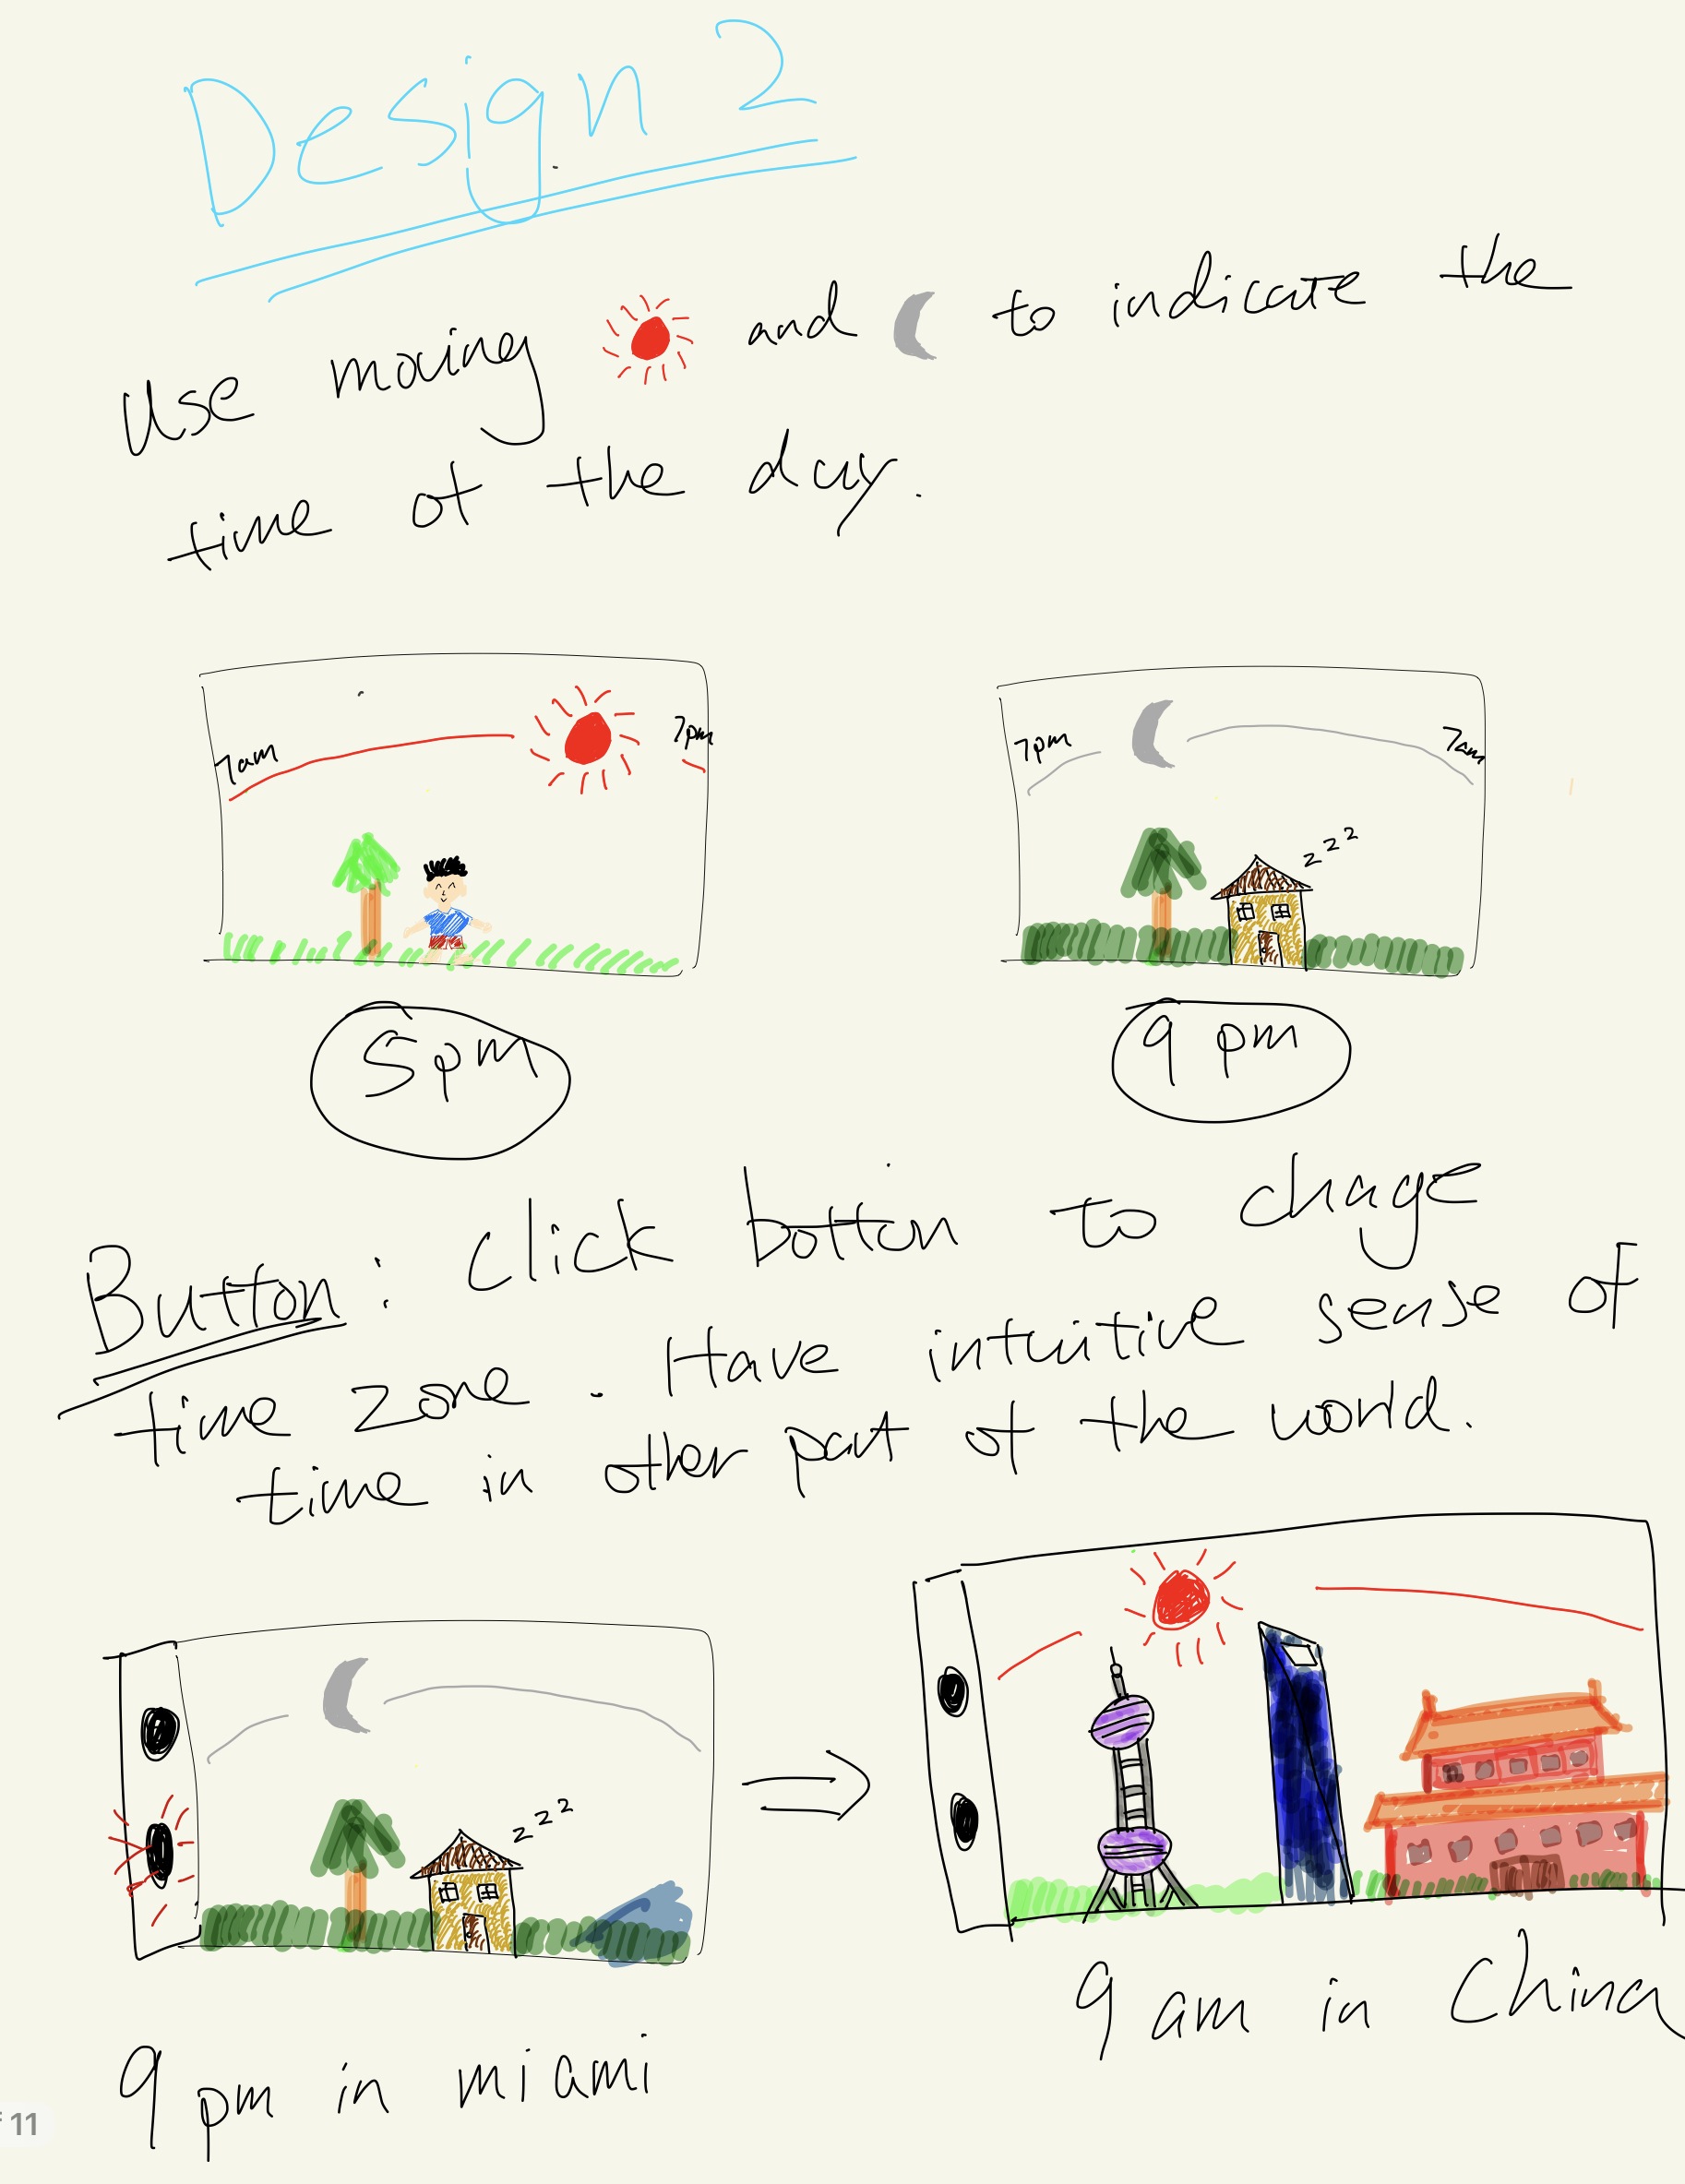 Design 2
Use moving and to indicate the
time of the day.
7am
7pm
7pm
7am
z z z
5pm
9 pm
Button: Click botton to chage
time zone. Have intuitive sense of
time in other part of the world.
z z z
9 am in China
9 pm in miami
11